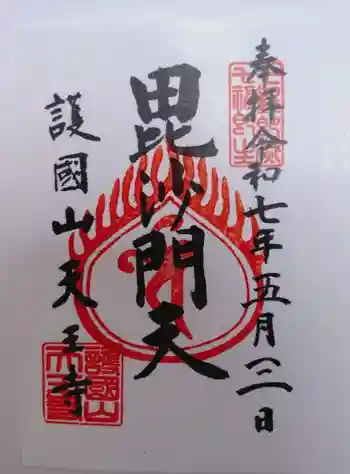 奉拝令和七年五月三日
毘沙門天
護國山天王寺
護國山